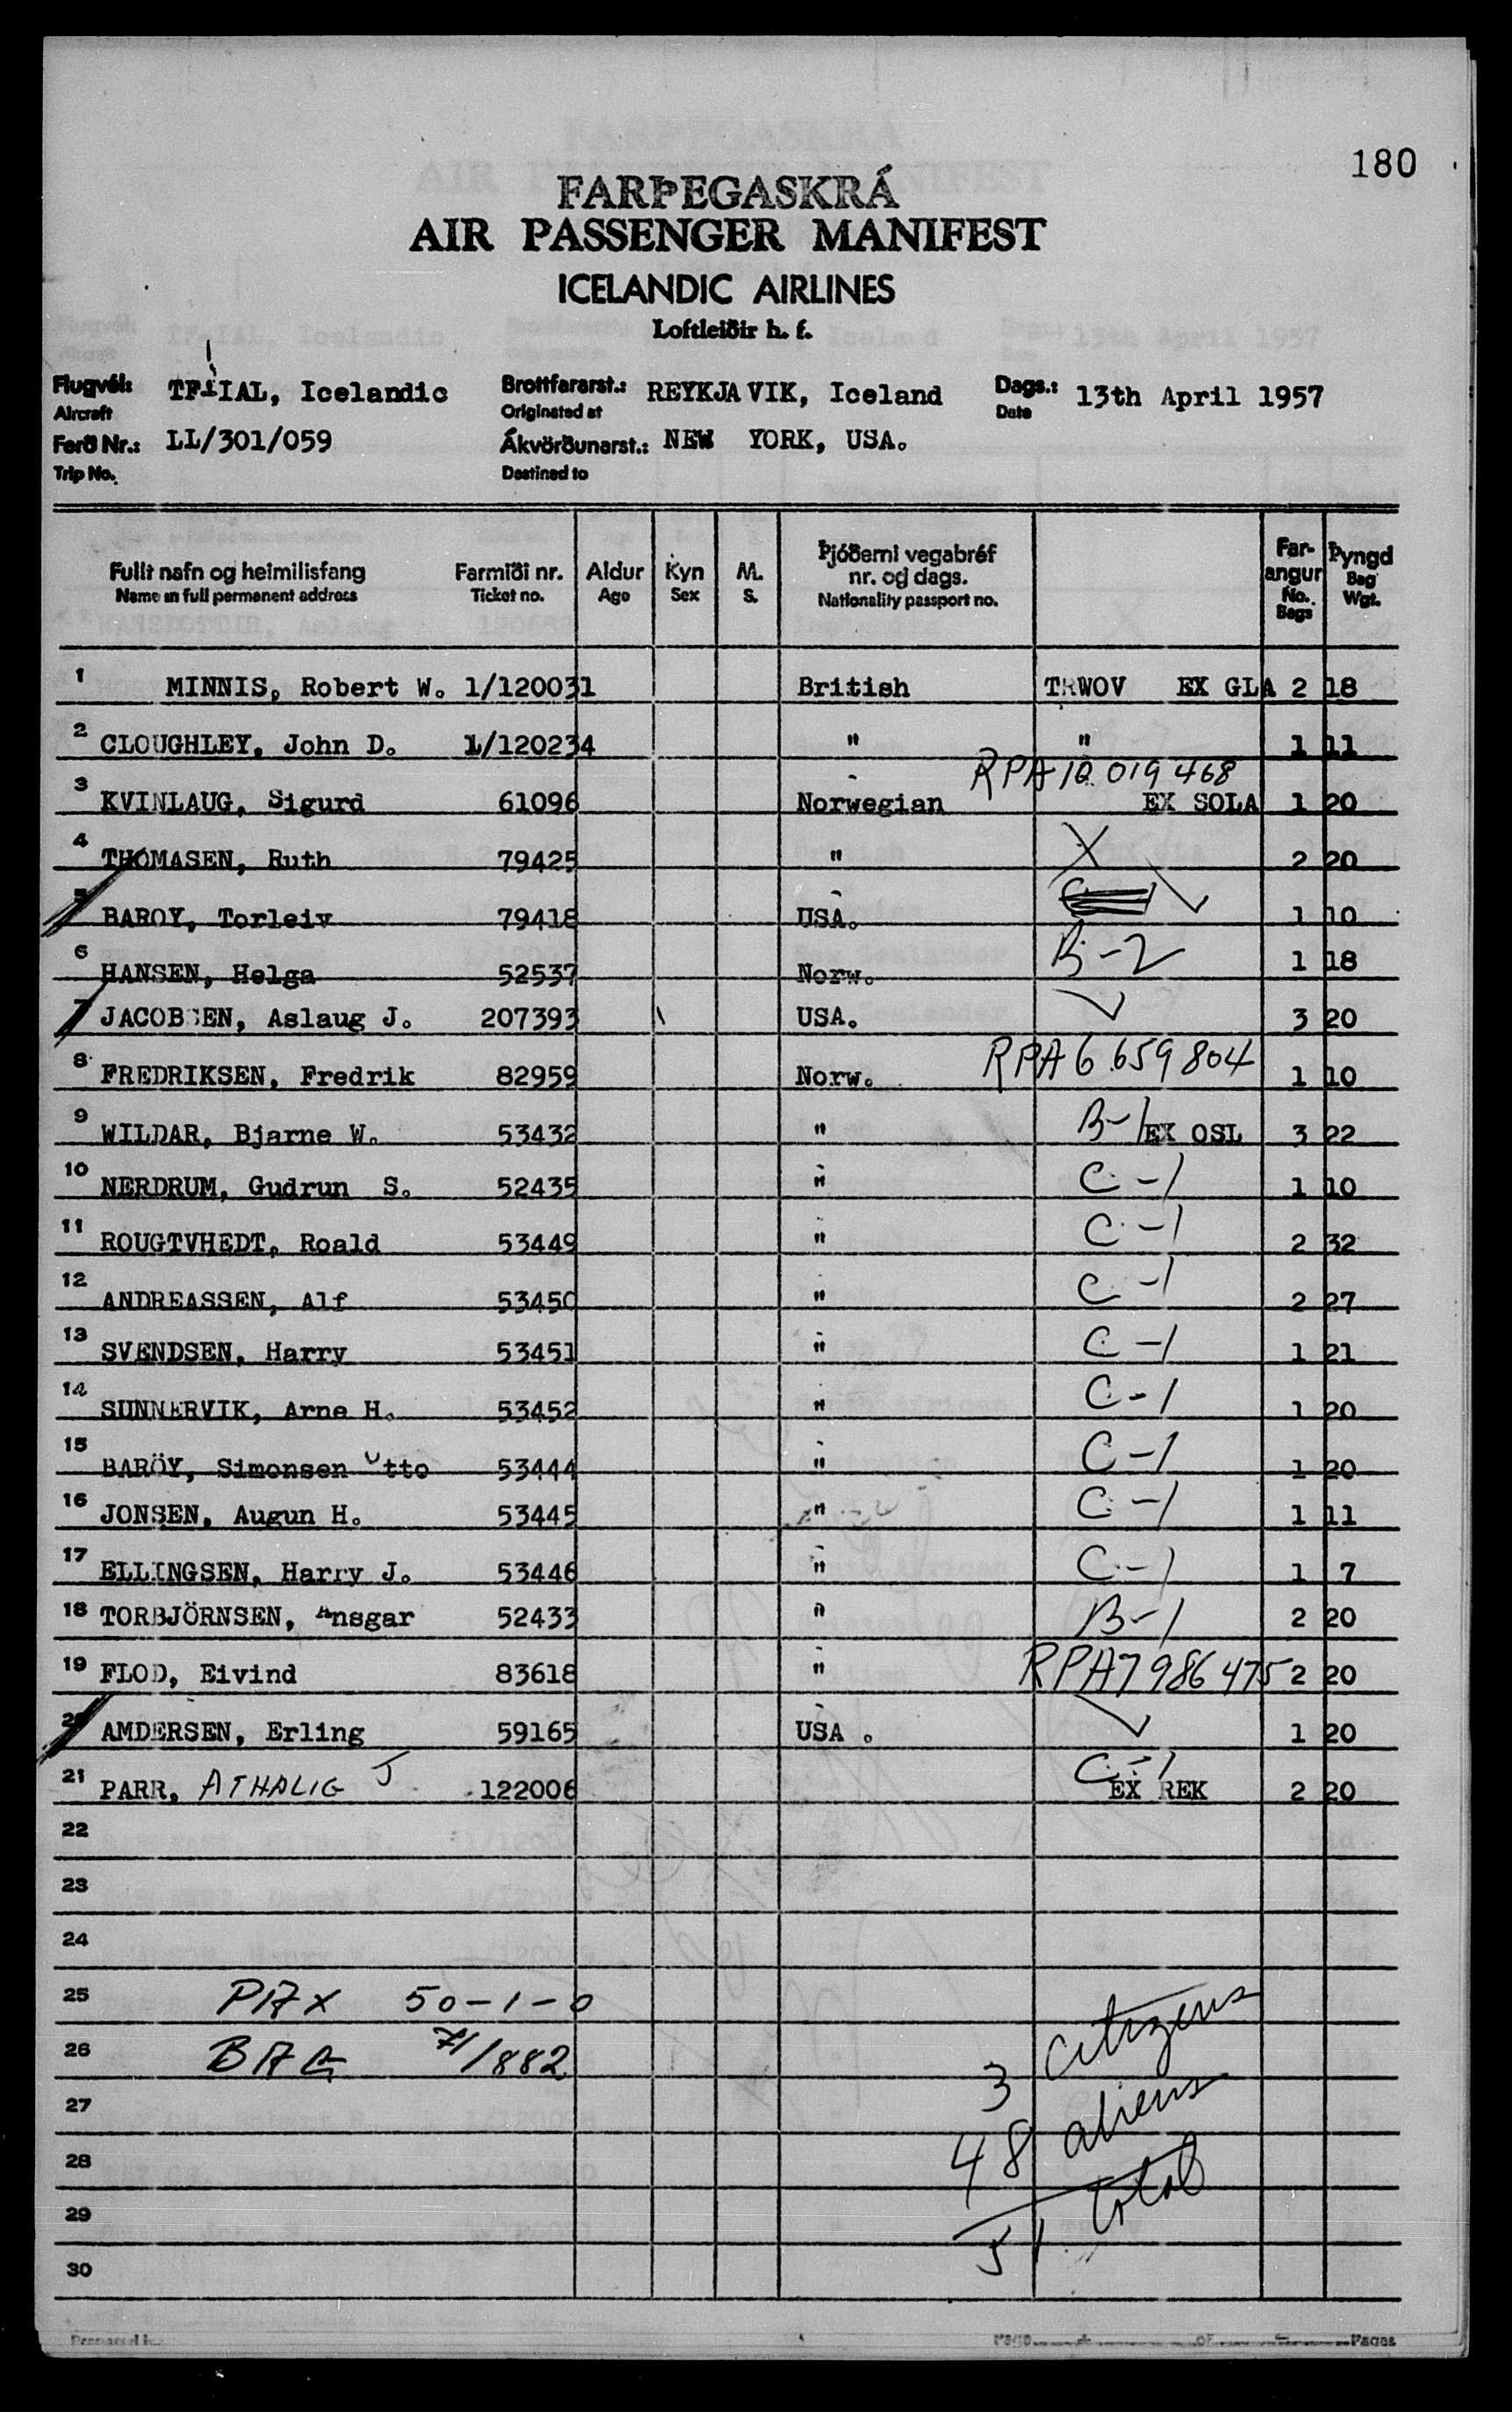 180
FARÞEGASKRÁ
AIR PASSENGER MANIFEST
ICELANDIC AIRLINES
Loftleiðir h. f.
Flugvél: TF-IAL, Icelandic Brottfararst.: REYKJAVIK, Iceland Dags.: 13th April 1957
Aircraft Originated at Date
Ferð Nr.: LL/301/059 Ákvörðunarst.: NEW YORK, USA.
Trip No. Destined to
Fullt nafn og heimilisfang Farmiði nr. Aldur Kyn M. Þjóðerni vegabréf nr. og dags. Far-angur Þyngd
Name in full permanent address Ticket no. Age Sex S. Nationality passport no. No. Bags Bag Wgt.
1 MINNIS, Robert W. 1/120031 British TRWOV EX GLA 2 18
2 CLOUGHLEY, John D. 1/120234 " " 1 11
3 KVINLAUG, Sigurd 61096 Norwegian RPA 10 019 468 EX SOLA 1 20
4 THOMASEN, Ruth 79425 " X 2 20
5 BAROY, Torleiv 79418 USA. 1 10
6 HANSEN, Helga 52537 Norw. B-2 1 18
7 JACOBSEN, Aslaug J. 207393 USA. 3 20
8 FREDRIKSEN, Fredrik 82959 Norw. RPA 6 659 804 1 10
9 WILDAR, Bjarne W. 53432 " B-1 EX OSL 3 22
10 NERDRUM, Gudrun S. 52435 " C-1 1 10
11 ROUGTVHEDT, Roald 53449 " C-1 2 32
12 ANDREASSEN, Alf 53450 " C-1 2 27
13 SVENDSEN, Harry 53451 " C-1 1 21
14 SUNNERVIK, Arne H. 53452 " C-1 1 20
15 BARÖY, Simonsen Otto 53444 " C-1 1 20
16 JONSEN, Augun H. 53445 " C-1 1 11
17 ELLINGSEN, Harry J. 53446 " C-1 1 7
18 TORBJÖRNSEN, Ansgar 52433 " B-1 2 20
19 FLOD, Eivind 83618 " RPA 7 986 475 2 20
20 AMDERSEN, Erling 59165 USA . 1 20
21 PARR, ATHALIG J 122006 C-1 EX REK 2 20
22
23
24
25 PAX 50-1-0
26 BAG 71/882
3 citizens
27
48 aliens
28
51 total
29
30
Page of Pages